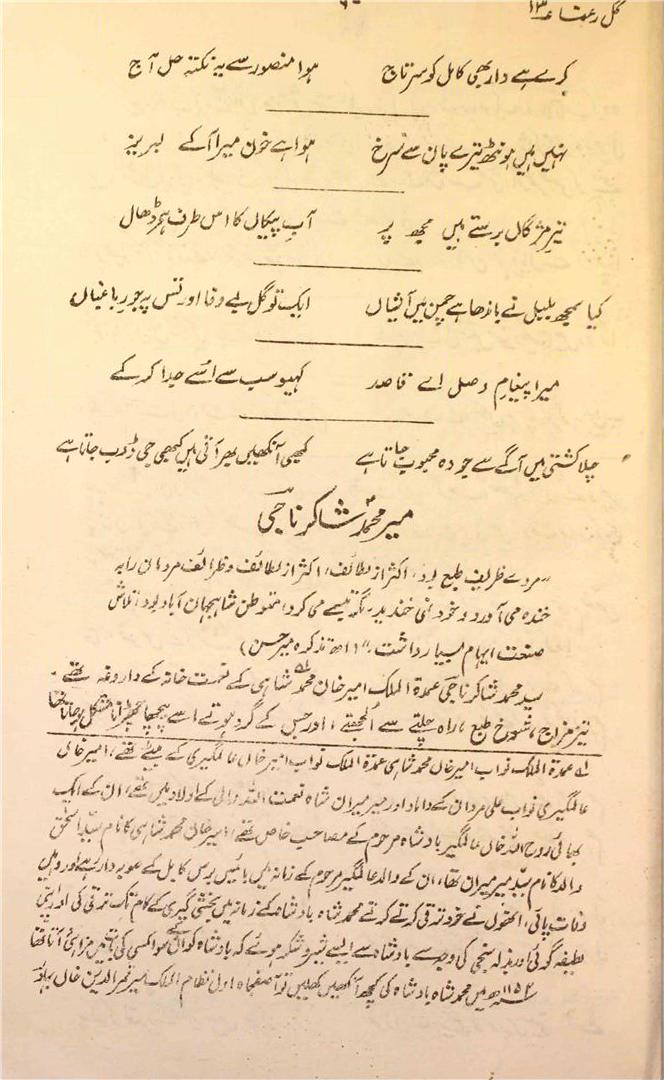 گل رعنا
کرے ہے دار بھی کامل کو سرتاج ہوا منصور سے یہ نکتہ حل آج
نہیں ہیں ہونٹھ تیرے پان سے سُرخ ہوا ہے خون میرا آکے لبریز
تیرِ مژگاں برستے ہیں مجھ پر آبِ پیکاں کا اس طرف ہے ڈھال
کیا سمجھ بلبل نے باندھا ہے چمن میں آشیاں ایک تو گل بے وفا اور تس پہ جورِ باغباں
میرا پیغامِ وصل اے قاصد کہیو سب سے اُسے جدا کر کے
چلا کشتی میں آگے سے جو وہ محبوب جاتا ہے کبھی آنکھیں بھر آتی ہیں کبھی جی ڈوب جاتا ہے
میر محمد شاکر ناجی
"مردے ظریف طبع بود، اکثر از لطائف و ظرائف مردمان را بہ
خندہ می آورد و خود نمی خندید، مگر تبسمے می کرد، متوطن شاہجہان آباد بود، تلاش
صنعت ایہام بسیار داشت۔" (تذکرہ میر حسن)
سید محمد شاکر ناجی عمدۃ الملک امیر خان محمد شاہی کے نعمت خانہ کے داروغہ تھے۔
تیز مزاج، شوخ طبع، راہ چلتے سے اُلجھتے، اور جس کے گرد ہوتے اسے پیچھا چھڑانا مشکل ہو جاتا تھا
عمدۃ الملک نواب امیر خاں محمد شاہی عمدۃ الملک نواب امیر خاں عالمگیری کے بیٹے تھے، امیر خاں
عالمگیری نواب علی مردان کے داماد اور میر میران شاہ نعمت اللہ ولی کے اولاد میں تھے، ان کے ایک
بھائی روح اللہ خاں عالمگیر بادشاہ مرحوم کے مصاحب خاص تھے، امیر خاں محمد شاہی کا نام سید اسحٰق
والد کا نام سید میر میران تھا، ان کے والد عالمگیر مرحوم کے زمانہ میں بائیس برس کابل کے صوبہ دار رہے اور وہیں
وفات پائی، انھوں نے خود ترقی کرتے کرتے محمد شاہ بادشاہ کے زمانہ میں بخشی گیری کے کام تک ترقی کی اور اپنی
لطیفہ گوئی اور بذلہ سنجی کی وجہ سے بادشاہ سے ایسے شیر و شکر ہوئے کہ بادشاہ کو ان کے سوا کسی کی میں مزا نہیں آتا تھا
۱۱۵۲ھ میں محمد شاہ بادشاہ کی کچھ آنکھیں کھلیں تو آصفجاہ اول نظام الملک میر قمر الدین خاں بہادر